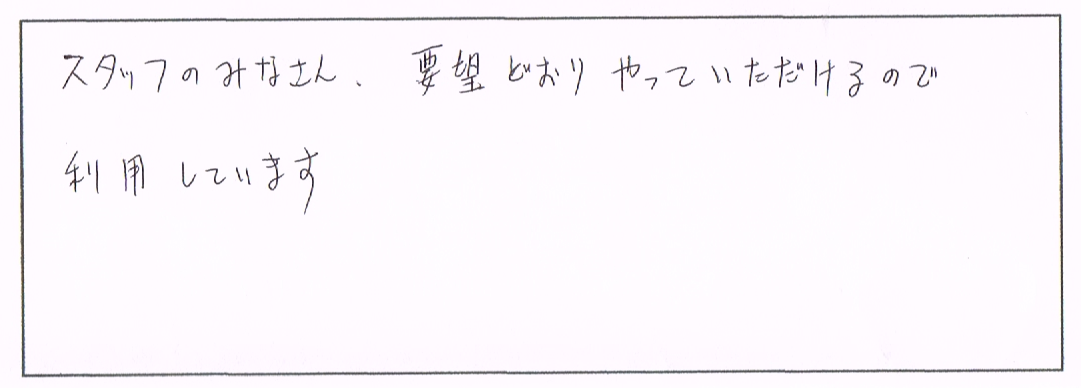 スタッフのみなさん、要望どおりやっていただけるので
利用しています